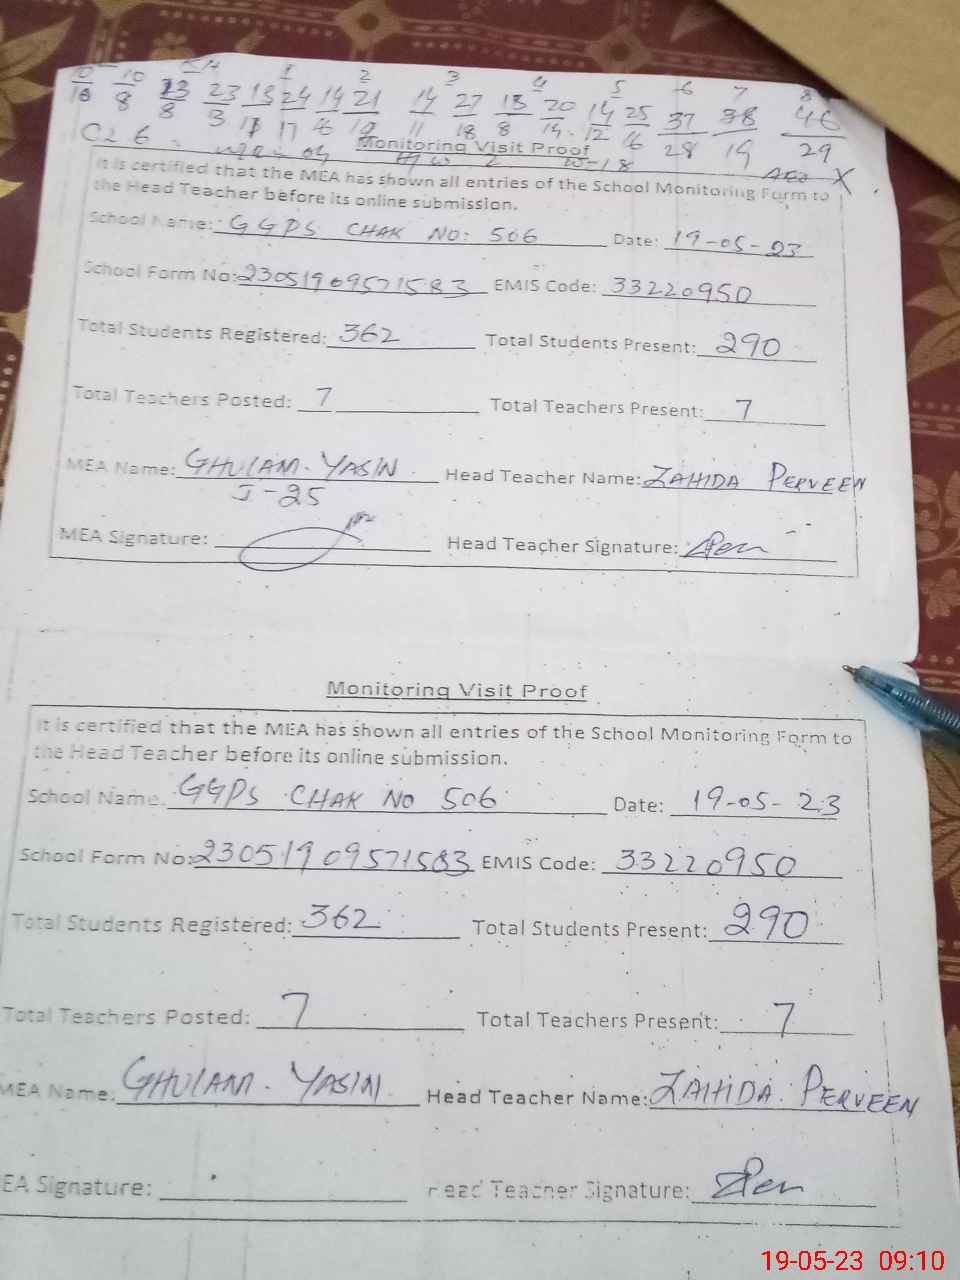 1 2 3 4 5 6 7 8
10/10 10/8 13/8 23/3 13/11 24/17 14/6 21/19 14/11 27/18 13/8 20/14 14/12 25/16 37/28 38/19 46/29
C2.6
Monitoring Visit Proof
It is certified that the MEA has shown all entries of the School Monitoring Form to
the Head Teacher before its online submission.
School Name: GGPS CHAK NO: 506 Date: 19-05-23
School Form No: 23051909571583 EMIS Code: 33220950
Total Students Registered: 362 Total Students Present: 290
Total Teachers Posted: 7 Total Teachers Present: 7
MEA Name: GHULAM. YASIN Head Teacher Name: ZAHIDA PERVEEN
I-25
MEA Signature: Head Teacher Signature:
Monitoring Visit Proof
It is certified that the MEA has shown all entries of the School Monitoring Form to
the Head Teacher before its online submission.
School Name. GGPS CHAK NO 506 Date: 19-05-23
School Form No: 23051909571583 EMIS Code: 33220950
Total Students Registered: 362 Total Students Present: 290
Total Teachers Posted: 7 Total Teachers Present: 7
MEA Name: GHULAM. YASIN Head Teacher Name: ZAHIDA. PERVEEN
EA Signature: Head Teacher Signature:
19-05-23 09:10